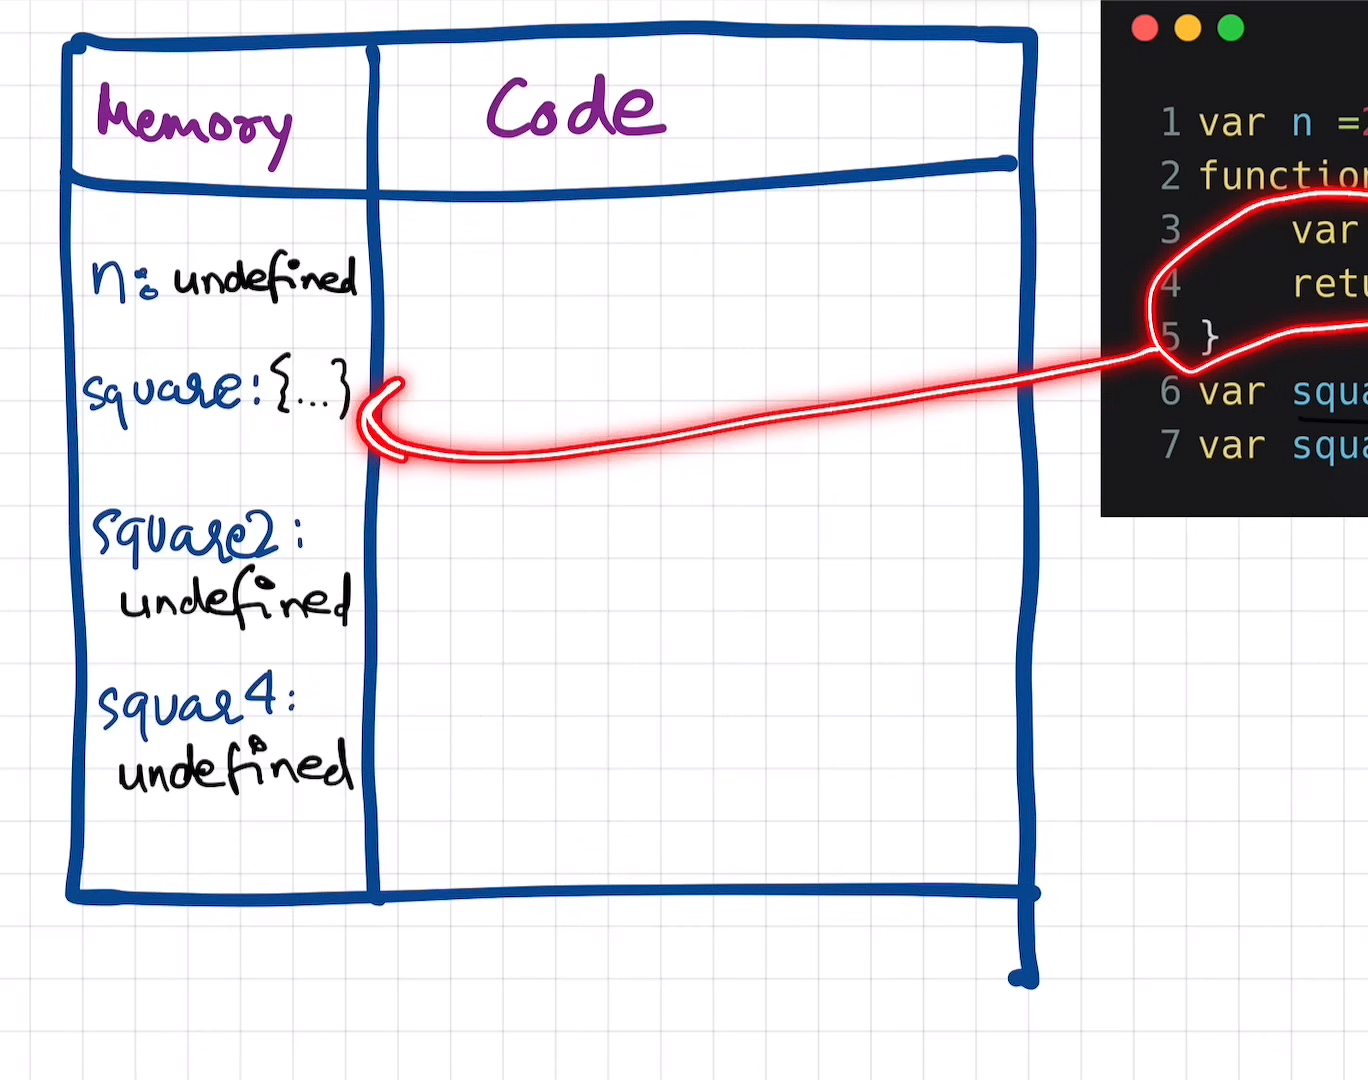 Memory
Code
n: undefined
square: {...}
square2:
undefined
squar4:
undefined
1 var n =
2 function
3 var
4 retu
5 }
6 var squa
7 var squa